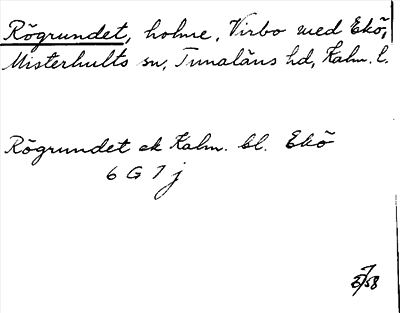 Rögrundet, holme, Virbo med Ekö,
Misterhults sn, Tunaläns hd, Kalm. l.
Rögrundet ek Kalm. bl. Ekö
6 G 7 j